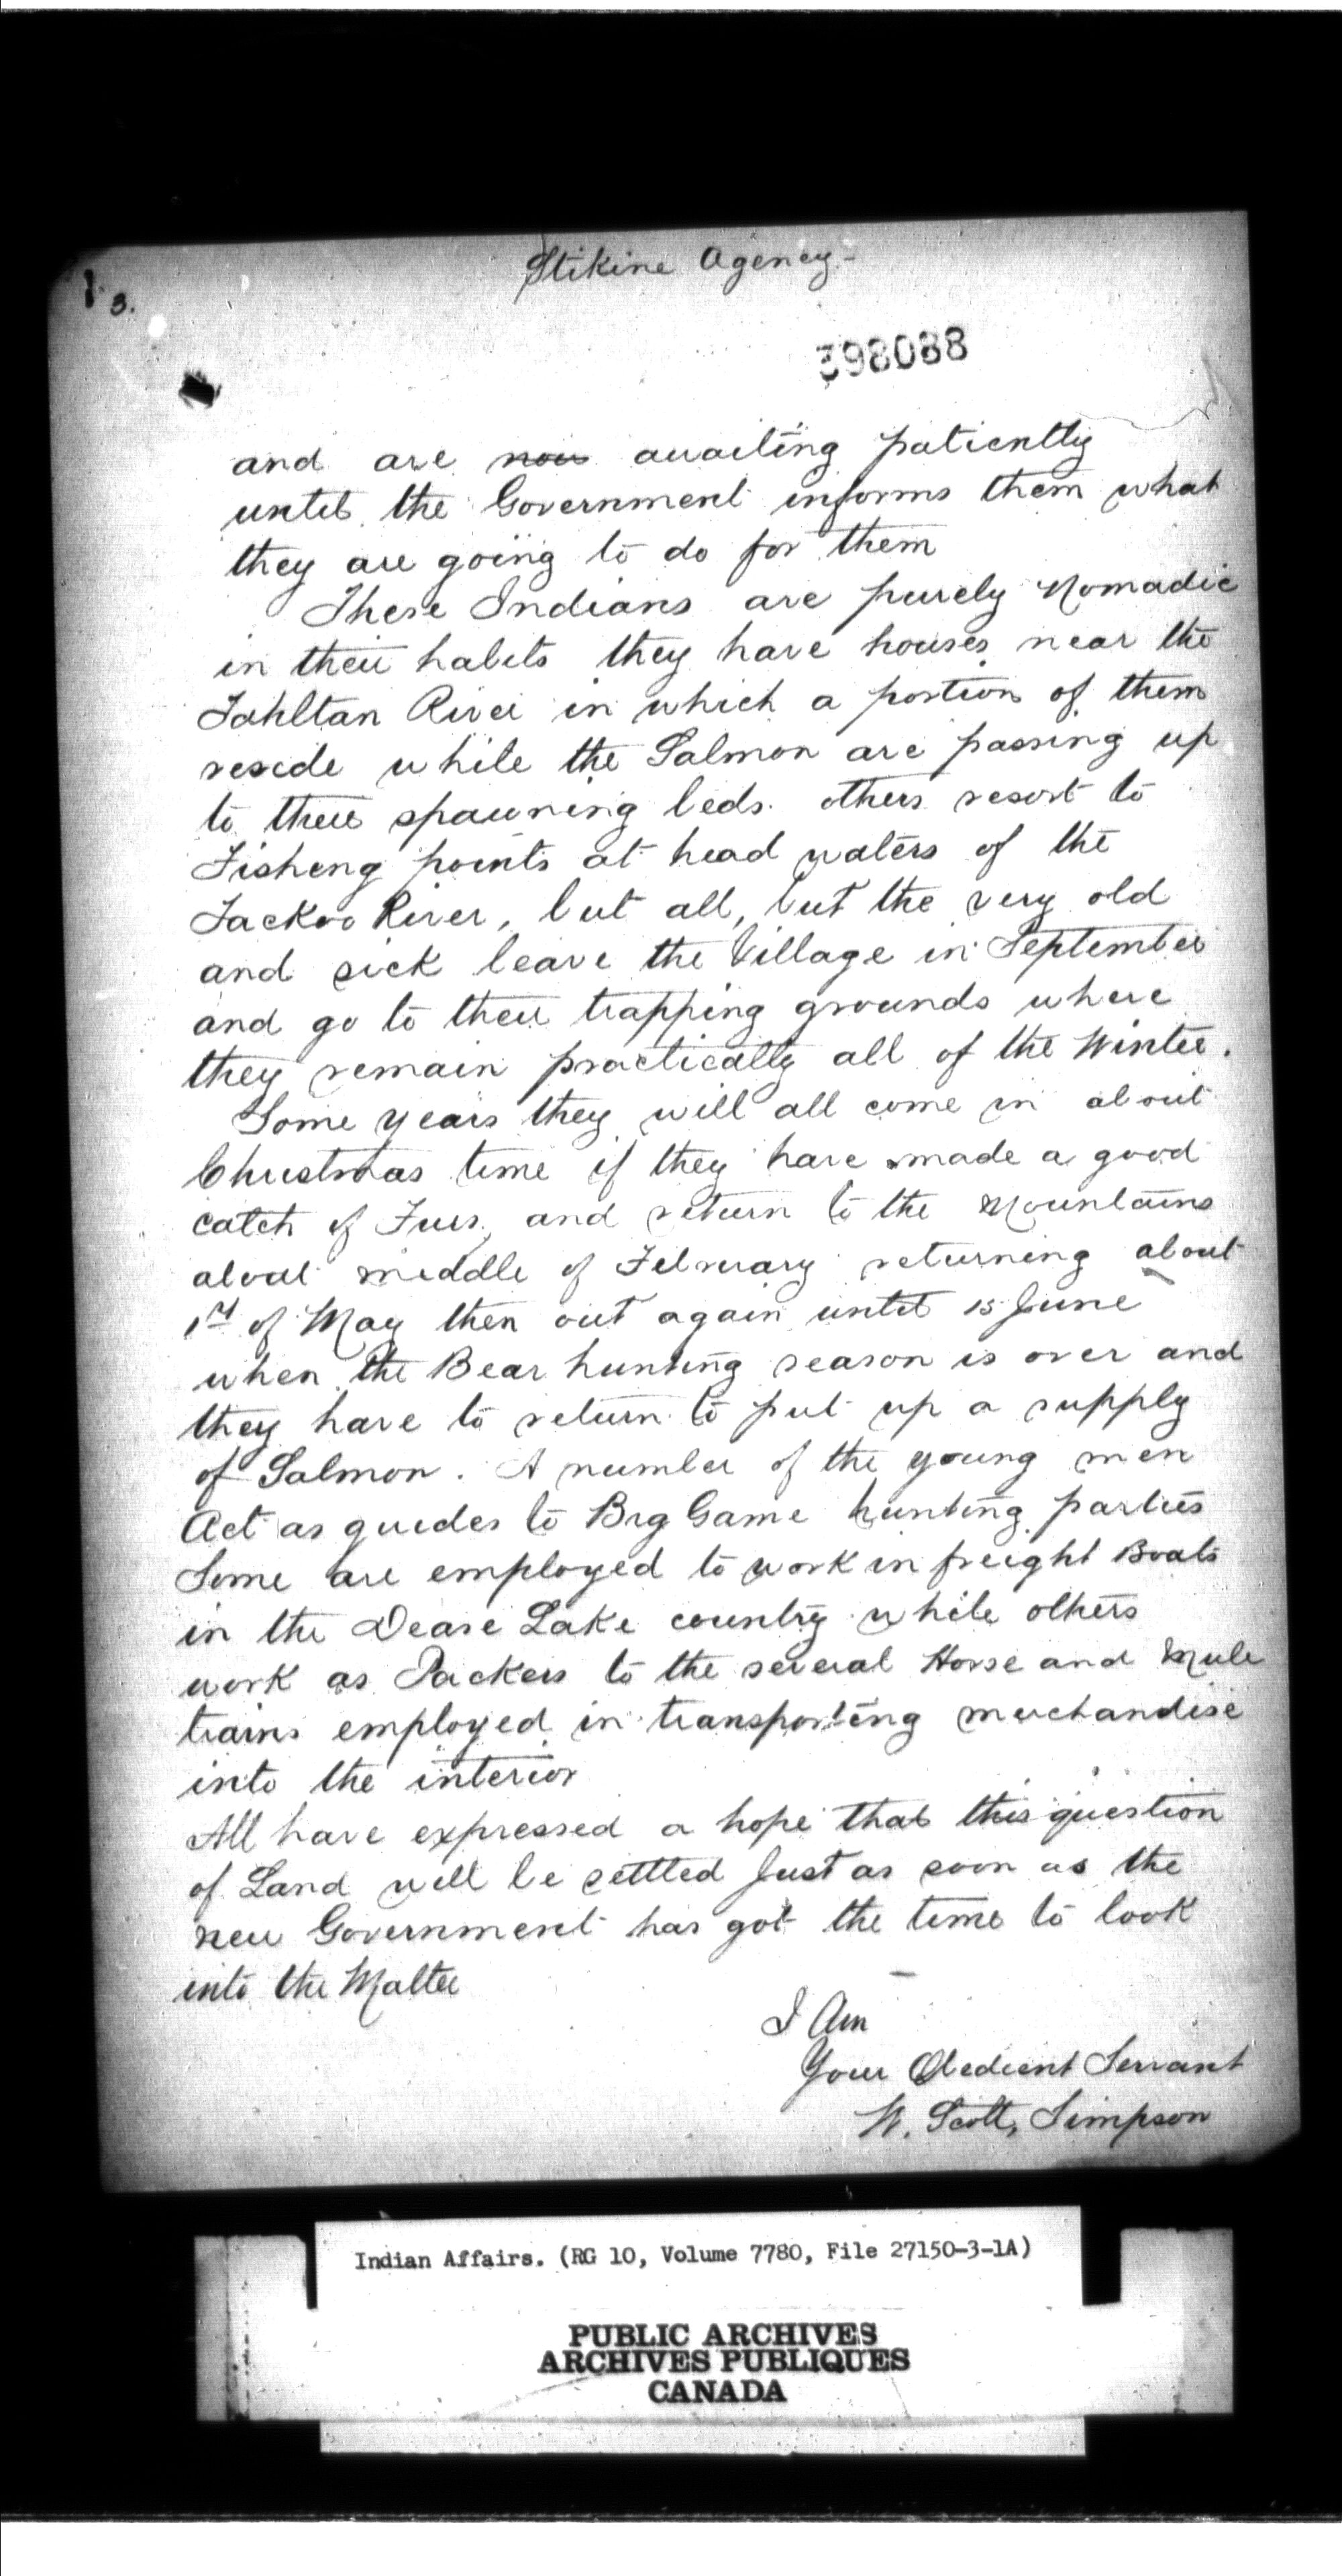 Stikine Agency -
3.
398088
and are now awaiting patiently
until the Government informs them what
they are going to do for them
These Indians are purely Nomadic
in their habits they have houses near the
Tahltan River in which a portion of them
reside while the Salmon are passing up
to their spawning beds. others resort to
Fishing points at head waters of the
Tackoo River, but all, but the very old
and sick leave the Village in September
and go to their trapping grounds where
they remain practically all of the Winter.
Some years they will all come in about
Christmas time if they have made a good
catch of Furs, and return to the Mountains
about middle of February returning about
1st of May then out again until 15 June
when the Bear hunting season is over and
they have to return to put up a supply
of Salmon. A number of the young men
Act as guides to Big Game hunting parties
Some are employed to work in freight Boats
in the Dease Lake country while others
work as Packers to the several Horse and Mule
trains employed in transporting merchandise
into the interior
All have expressed a hope that this question
of Land will be settled Just as soon as the
new Government has got the time to look
into the Matter
I Am
Your Obedient Servant
W. Scott, Simpson
Indian Affairs. (RG 10, Volume 7780, File 27150-3-1A)
PUBLIC ARCHIVES
ARCHIVES PUBLIQUES
CANADA